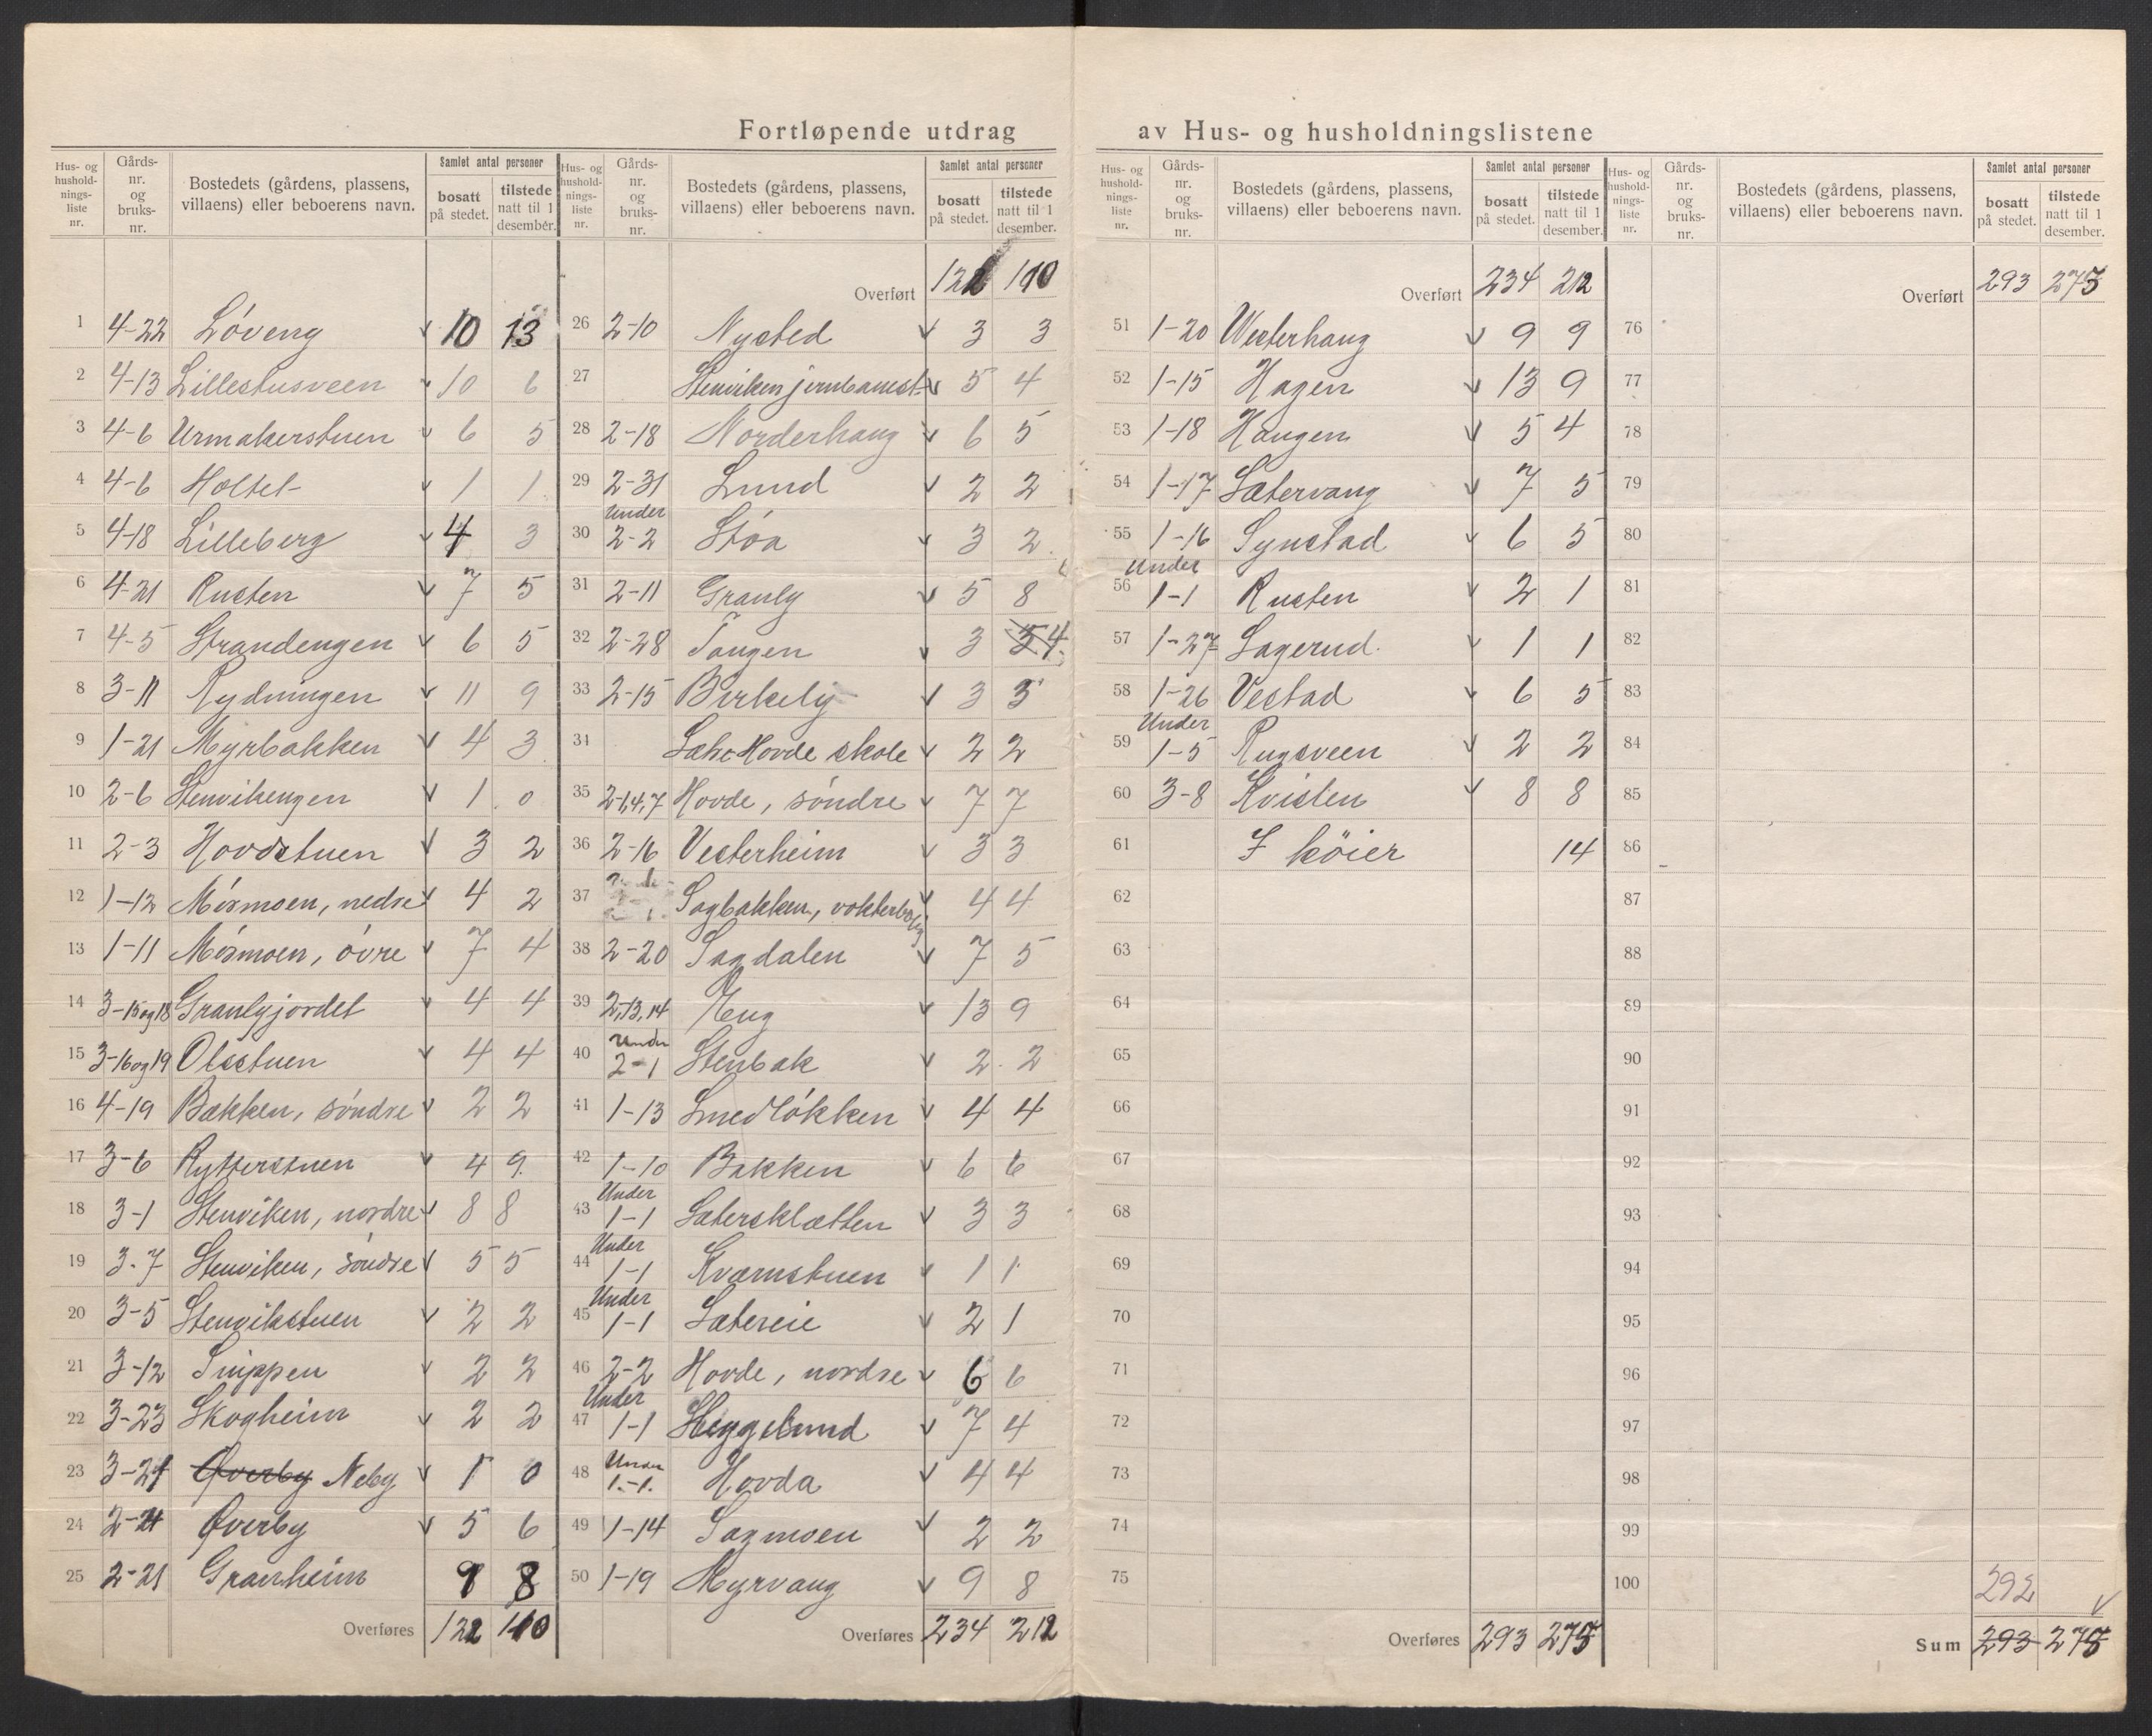 Fortløpende utdrag av Hus- og husholdningslistene
Hus- og husholdnings-liste nr. | Gårds-nr. og bruks-nr. | Bostedets (gårdens, plassens, villaens) eller beboerens navn. | Samlet antal personer bosatt på stedet. | tilstede natt til 1 desember.
1 4-22 Løveng v 10 13
2 4-13 Lillestusveen v 10 6
3 4-6 Urmakerstuen v 6 5
4 4-6 Holtet v 1 1
5 4-18 Lilleberg v 4 3
6 4-21 Rusten v 7 5
7 4-5 Strandengen v 6 5
8 3-11 Rydningen v 11 9
9 1-21 Myrbakken v 4 3
10 2-6 Stenvikengen v 1 0
11 2-3 Hovdstuen v 3 2
12 1-12 Mósmoen, nedre v 4 2
13 1-11 Mósmoen, óvre v 7 4
14 3-15og18 Granlyjordet v 4 4
15 3-16og19 Olsstuen v 4 4
16 4-19 Bakken, sóndre v 2 2
17 3-6 Rytterstuen v 4 9
18 3-1 Stenviken, nordre v 8 8
19 3-7 Stenviken, sóndre v 5 5
20 3-5 Stenvikstuen v 2 2
21 3-12 Snippen v 2 2
22 3-23 Skogheim v 2 2
23 3-24 Øverby Neby v 1 0
24 2-24 Øverby v 5 6
25 2-21 Granheim 9 8
Overføres 122 110
Hus- og husholdnings-liste nr. | Gårds-nr. og bruks-nr. | Bostedets (gårdens, plassens, villaens) eller beboerens navn. | Samlet antal personer bosatt på stedet. | tilstede natt til 1 desember.
Overført 122 110
26 2-10 Nysted v 3 3
27 Stenviken jernbanest. v 5 4
28 2-18 Norderhaug v 6 5
29 2-31 Lund v 2 2
30 Under 2-2 Stóa v 3 2
31 2-11 Granly v 5 8
32 2-28 Tangen v 3 4
33 2-15 Birkely v 3 3
34 Hovde skole v 2 2
35 2-1,4,7 Hovde, sóndre v 7 7
36 2-16 Vesterheim v 3 3
37 Sagbakken, vokterbolig v 4 4
38 2-20 Sagdalen v 7 5
39 2,13,14 Eng v 13 9
40 Under 2-1 Stenbak v 2 2
41 1-13 Smedlókken v 4 4
42 1-10 Bakken v 6 6
43 Under 1-1 Sætersklætten v 3 3
44 Under 1-1 Kværnstuen v 1 1
45 Under 1-1 Sætereie v 2 1
46 2-2 Hovde, nordre v 6 6
47 Under 1-1 Heggelund v 7 4
48 Under 1-1 Hovda v 4 4
49 1-14 Sagmoen v 2 2
50 1-19 Myrvang v 9 8
Overføres 234 212
Hus- og husholdnings-liste nr. | Gårds-nr. og bruks-nr. | Bostedets (gårdens, plassens, villaens) eller beboerens navn. | Samlet antal personer bosatt på stedet. | tilstede natt til 1 desember.
Overført 234 212
51 1-20 Westerhaug v 9 9
52 1-15 Hagen v 13 9
53 1-18 Haugen v 5 4
54 1-17 Sætervang v 7 5
55 1-16 Synstad v 6 5
56 Under 1-1 Rusten v 2 1
57 1-27 Lagerud v 1 1
58 1-26 Vestad v 6 5
59 Under 1-5 Rugsveen v 2 2
60 3-8 Kvisten v 8 8
61 I köier 14
62
63
64
65
66
67
68
69
70
71
72
73
74
75
Overføres 293 275
Hus- og husholdnings-liste nr. | Gårds-nr. og bruks-nr. | Bostedets (gårdens, plassens, villaens) eller beboerens navn. | Samlet antal personer bosatt på stedet. | tilstede natt til 1 desember.
Overført 293 275
76
77
78
79
80
81
82
83
84
85
86
87
88
89
90
91
92
93
94
95
96
97
98
99
100
292 v
Sum 293 275